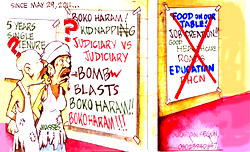 SINCE MAY 29, 2011...
5 YEARS
SINGLE
TENURE
BOKO HARAM!
KIDNAPPING
JUDICIARY VS
JUDICIARY
BOMB
BLASTS
BOKO HARAM!!
BOKO HARAM!!!
MASSES
FOOD ON OUR
TABLE!
JOB CREATION!
GOOD
HEALTHCARE
ROADS
EDUCATION
PHCN